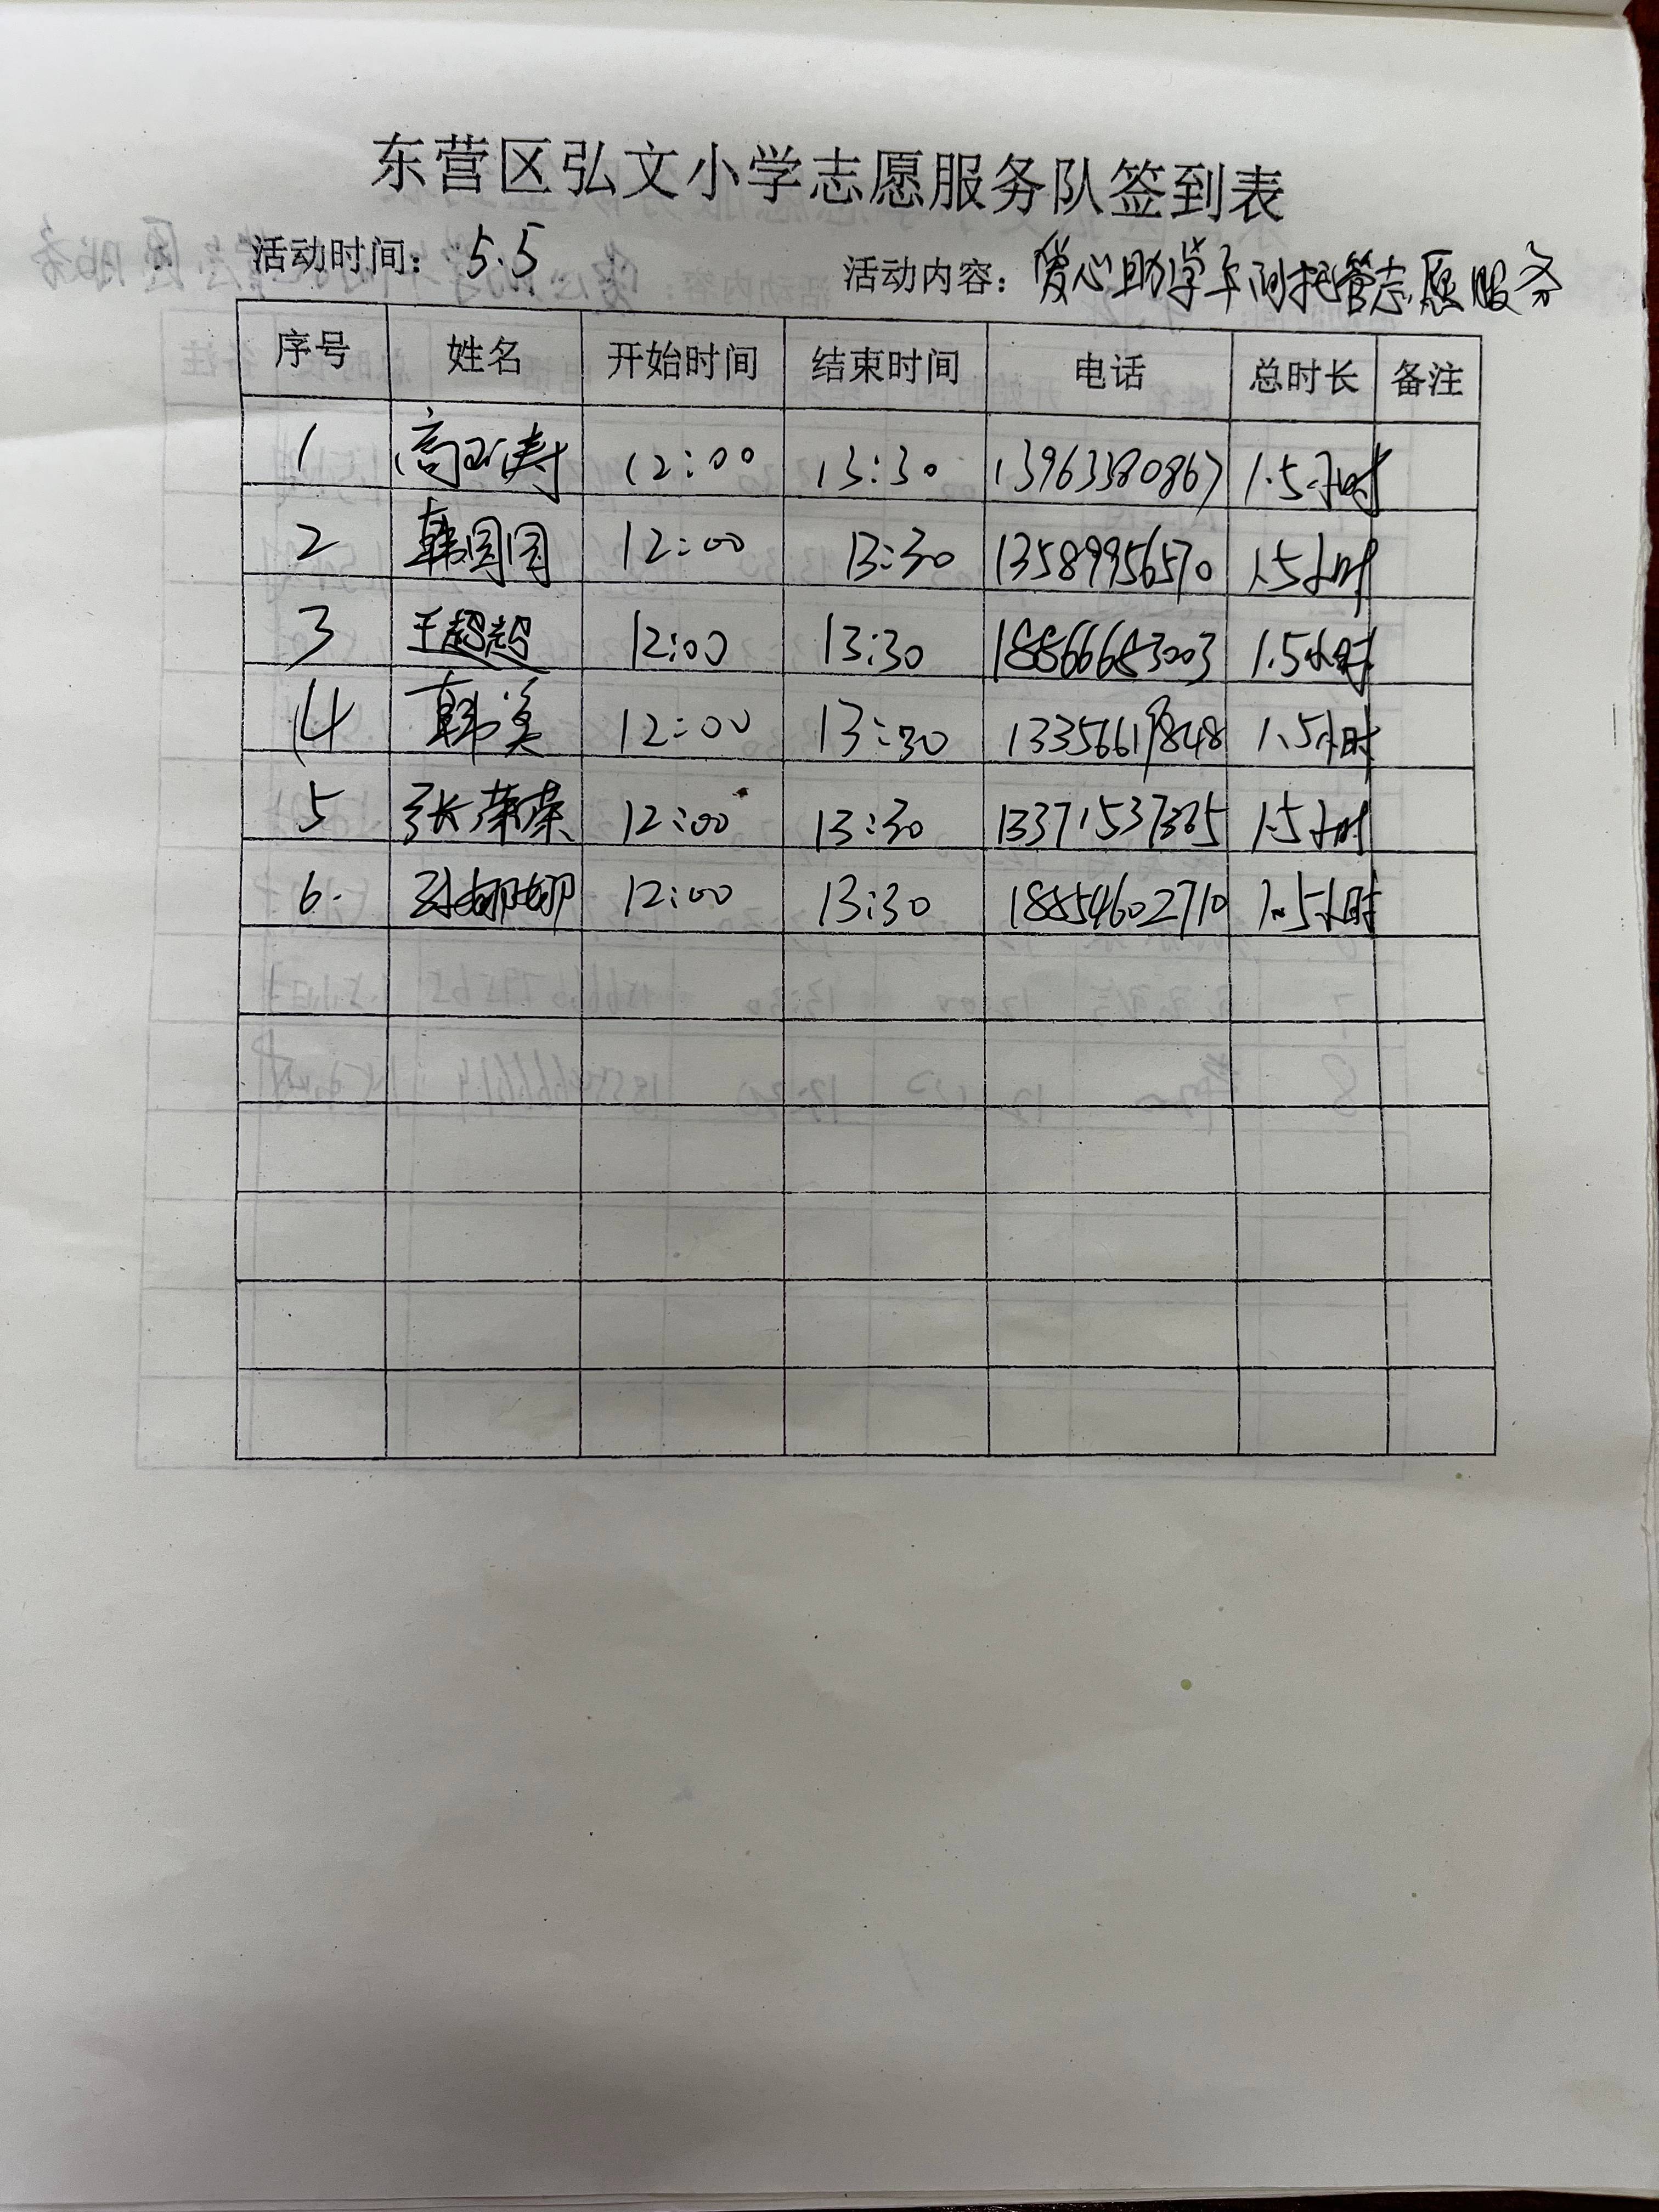 东营区弘文小学志愿服务队签到表
活动时间：5.5 活动内容：爱心助学午间托管志愿服务
序号 姓名 开始时间 结束时间 电话 总时长 备注
1 高玉涛 12:00 13:30 13963380867 1.5小时
2 韩圆圆 12:00 13:30 13589956570 1.5小时
3 王超超 12:00 13:30 18866683003 1.5小时
4 韩美 12:00 13:30 13356619848 1.5小时
5 张荣荣 12:00 13:30 13371537335 1.5小时
6. 孙娜娜 12:00 13:30 18854602710 1.5小时